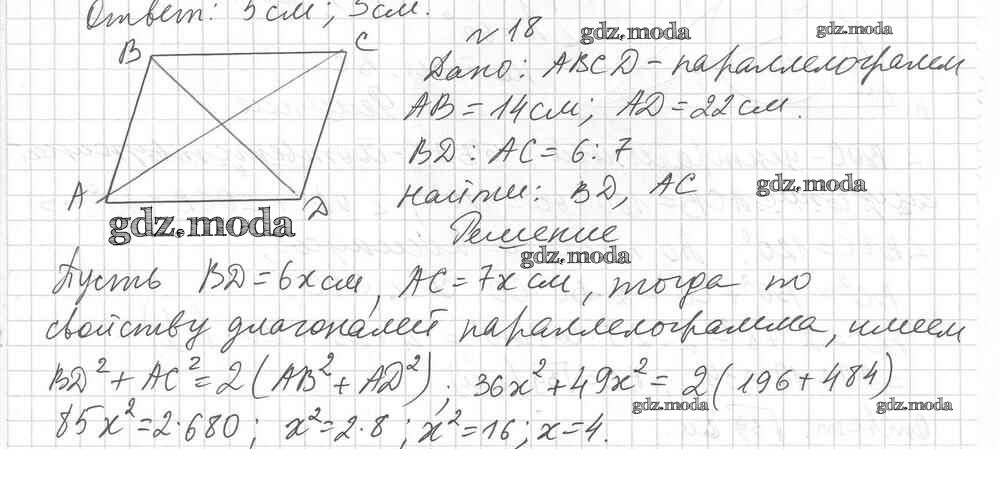 Ответ: 5 см; 5 см.
№ 18
gdz.moda
gdz.moda
B
C
A
D
Дано: ABCD – параллелограмм
AB = 14 см; AD = 22 см.
BD : AC = 6 : 7
Найти: BD, AC
gdz.moda
gdz.moda
Решение
gdz.moda
Пусть BD = 6x см, AC = 7x см, тогда по
свойству диагоналей параллелограмма, имеем
BD² + AC² = 2(AB² + AD²); 36x² + 49x² = 2(196 + 484)
gdz.moda
gdz.moda
85x² = 2·680; x² = 2·8; x² = 16; x = 4.